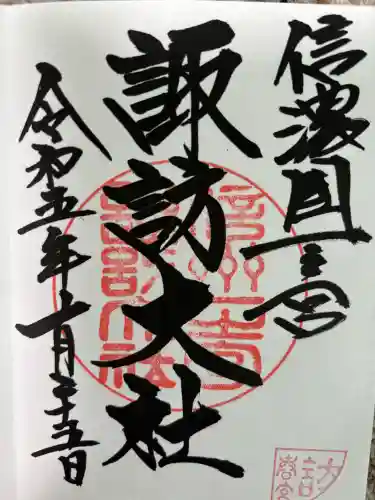 信濃國一之宮
諏訪大社
令和五年十一月二十五日